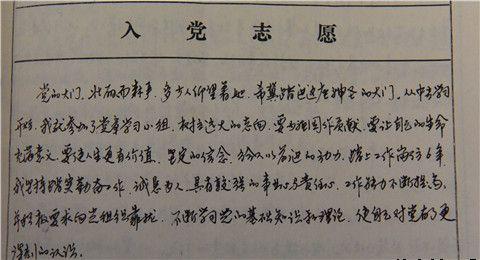 入 党 志 愿
党的大门，壮丽而庄重，多少人仰望着她，希冀踏进这座神圣的大门。从中学
开始，我就参加了党章学习小组，树立远大的志向，要为祖国作贡献，要让自己的生命
充满意义，要使人生更有价值。坚定的信念，给人以前进的动力，踏上工作岗位6年，
我坚持踏实勤奋工作，诚恳为人，具有较强的事业心与责任心，工作能力不断提高，
并积极要求向党组织靠拢，不断学习党的基础知识和理论，使自己对党有了更
深刻的认识。